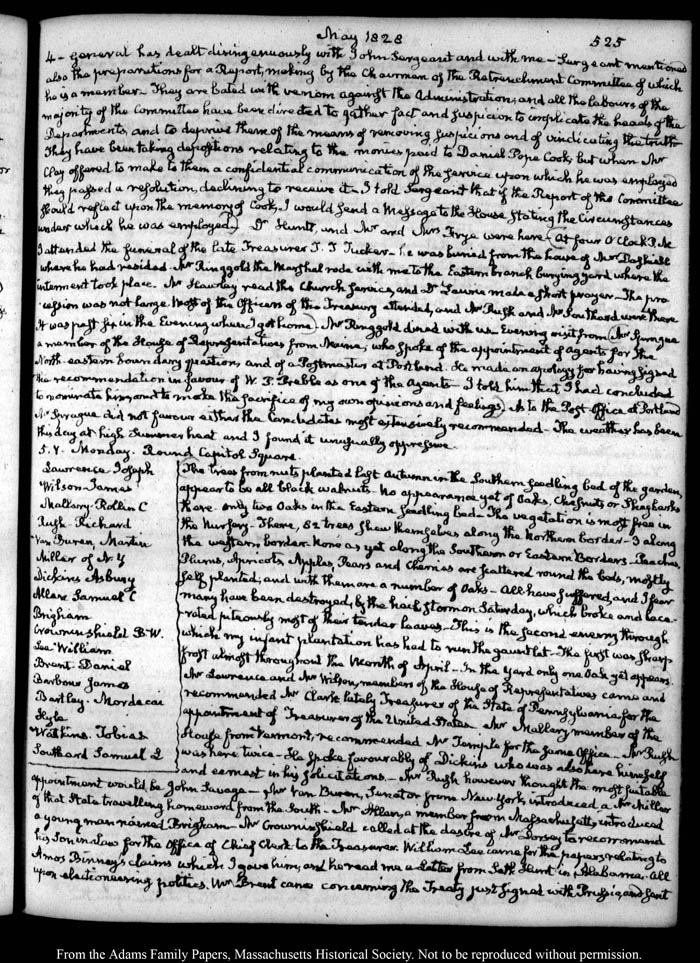 May 1828
525
4 - General has dealt disingenuously with John Sergeant and with me - Sergeant mentioned
also the preparations for a Report, making by the Chairman of the Retrenchment Committee of which
he is a member - They are bated with venom against the Administration, and all the labours of the
majority of the Committee have been directed to gather fact and suspicion to implicate the heads of the
Departments, and to deprive them of the means of removing suspicions and of vindicating the truth
They have been taking depositions relating to the monies paid to Daniel Pope Cook, but when Mr
Clay offered to make to them a confidential communication of the service upon which he was employed
they passed a resolution, declining to receive it - I told Sergeant that if the Report of the Committee
should reflect upon the memory of Cook, I would send a Message to the House stating the circumstances
under which he was employed) Dr Huntt, and Mr and Mrs Frye were here (At four O'Clock P.M.
I attended the funeral of the late Treasurer T. T. Tucker - he was buried from the house of Mr Dashiell
where he had resided. Mr Ringgold the Marshal rode with me to the Eastern branch burying yard where the
interment took place. Mr Hawley read the Church service, and Dr Laurie made a short prayer - The pro-
cession was not large. Most of the Officers of the Treasury attended, and Mr Rush and Mr Southard were there
It was past six in the Evening when I got home) Mr Ringgold dined with us - Evening visit from (Mr Sprague
a member of the House of Representatives from Maine, who spoke of the appointment of Agents for the
North-eastern boundary question, and of a Postmaster at Portland. He made an apology for having signed
the recommendation in favour of W. P. Preble as one of the Agents - I told him that I had concluded
to nominate him, and to make the sacrifice of my own opinions and feelings) As to the Post Office at Portland
Mr Sprague did not favour either the Candidates most extensively recommended - The weather has been
this day at high Summer heat and I found it unusually oppressive.
5. V. Monday. Round Capitol Square.
Lawrence Joseph
Wilson James
Mallary. Rollin C
Rush Richard
Van Buren, Martin
Miller of N.Y
Dickins Asbury
Allen Samuel C
Brigham
Crowninshield B. W.
Lee William
Brent Daniel
Barbour James
Bartley. Mordecai
Kyle
Watkins. Tobias
Southard Samuel L
The trees from nuts planted last Autumn in the Southern seedling bed of the garden,
appear to be all black walnuts - No appearance yet of Oaks, Chesnuts or Shagbarks
there. only two Oaks in the Eastern seedling bed - The vegetation is most free in
the Nursery - There, 82 trees shew themselves along the Northern border - 3 along
the western border. None as yet along the Southern or Eastern Borders - Peaches,
Plums, Apricots, Apples, Pears and Cherries are scattered round the beds, mostly
self planted, and with them are a number of Oaks - All have suffered, and I fear
many have been destroyed, by the hail storm on Saturday, which broke and lace-
rated piteously most of their tender leaves - This is the second enemy through
which my infant plantation has had to run the gauntlet - The first was sharp
frost almost throughout the Month of April - In the yard only one Oak yet appears.
Mr Lawrence and Mr Wilson, members of the House of Representatives came and
recommended Mr Clarke lately Treasurer of the State of Pennsylvania for the
appointment of Treasurer of the United States - Mr Mallary member of the
House from Vermont, recommended Mr Temple for the same Office - Mr Rush
was here twice - He spoke favourably of Dickins who was also here himself
and earnest in his solicitations - Mr Rush however thought the most suitable
appointment would be John Savage - Mr Van Buren, Senator from New York, introduced a Mr Miller
of that State travelling homeward from the South - Mr Allen, a member from Massachusetts, introduced
a young man named Brigham - Mr Crowninshield called at the desire of Mr Dorsey, to recommend
his Son in Law for the Office of Chief Clerk to the Treasurer. William Lee came for the papers relating to
Amos Binney's claims which I gave him, and he read me a Letter from Seth Hunt in Alabama. All
upon electioneering politics. Mr Brent came concerning the Treaty just signed with Prussia, and sent
From the Adams Family Papers, Massachusetts Historical Society. Not to be reproduced without permission.